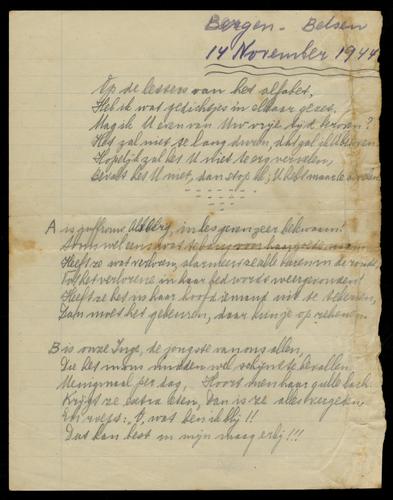 Bergen - Belsen
14 November 1944
Op de letters van het alfabet,
Heb ik wat gedichtjes in elkaar gezet,
Mag ik U even van Uw vrije tijd beroven?
Het zal niet te lang duren, dat zal ik U beloven
Hopelijk zal het U niet te erg vervelen,
Bevalt het U niet, dan stop ik, U hebt maar te
A is juffrouw Alsberg, in les geven zeer bekwaam!
Soms wel eens wat te
Heeft ze wat verloren, alarmeert ze alle buren in de ronde,
Tot het verlorene in haar bed wordt weergevonden!
Heeft ze het in haar hoofd iemand uit te tekenen,
Dan moet het gebeuren, daar kun je op rekenen
B is onze Inge, de jongste van ons allen,
Die het mom midden wel schijnt te bevallen
Menigmaal per dag, Hoort men haar gulle lach.
Krijgt ze extra eten, Dan is ze alles vergeten,
En roept: O, wat ben ik blij!!
Dat kan best in mijn maag erbij!!!